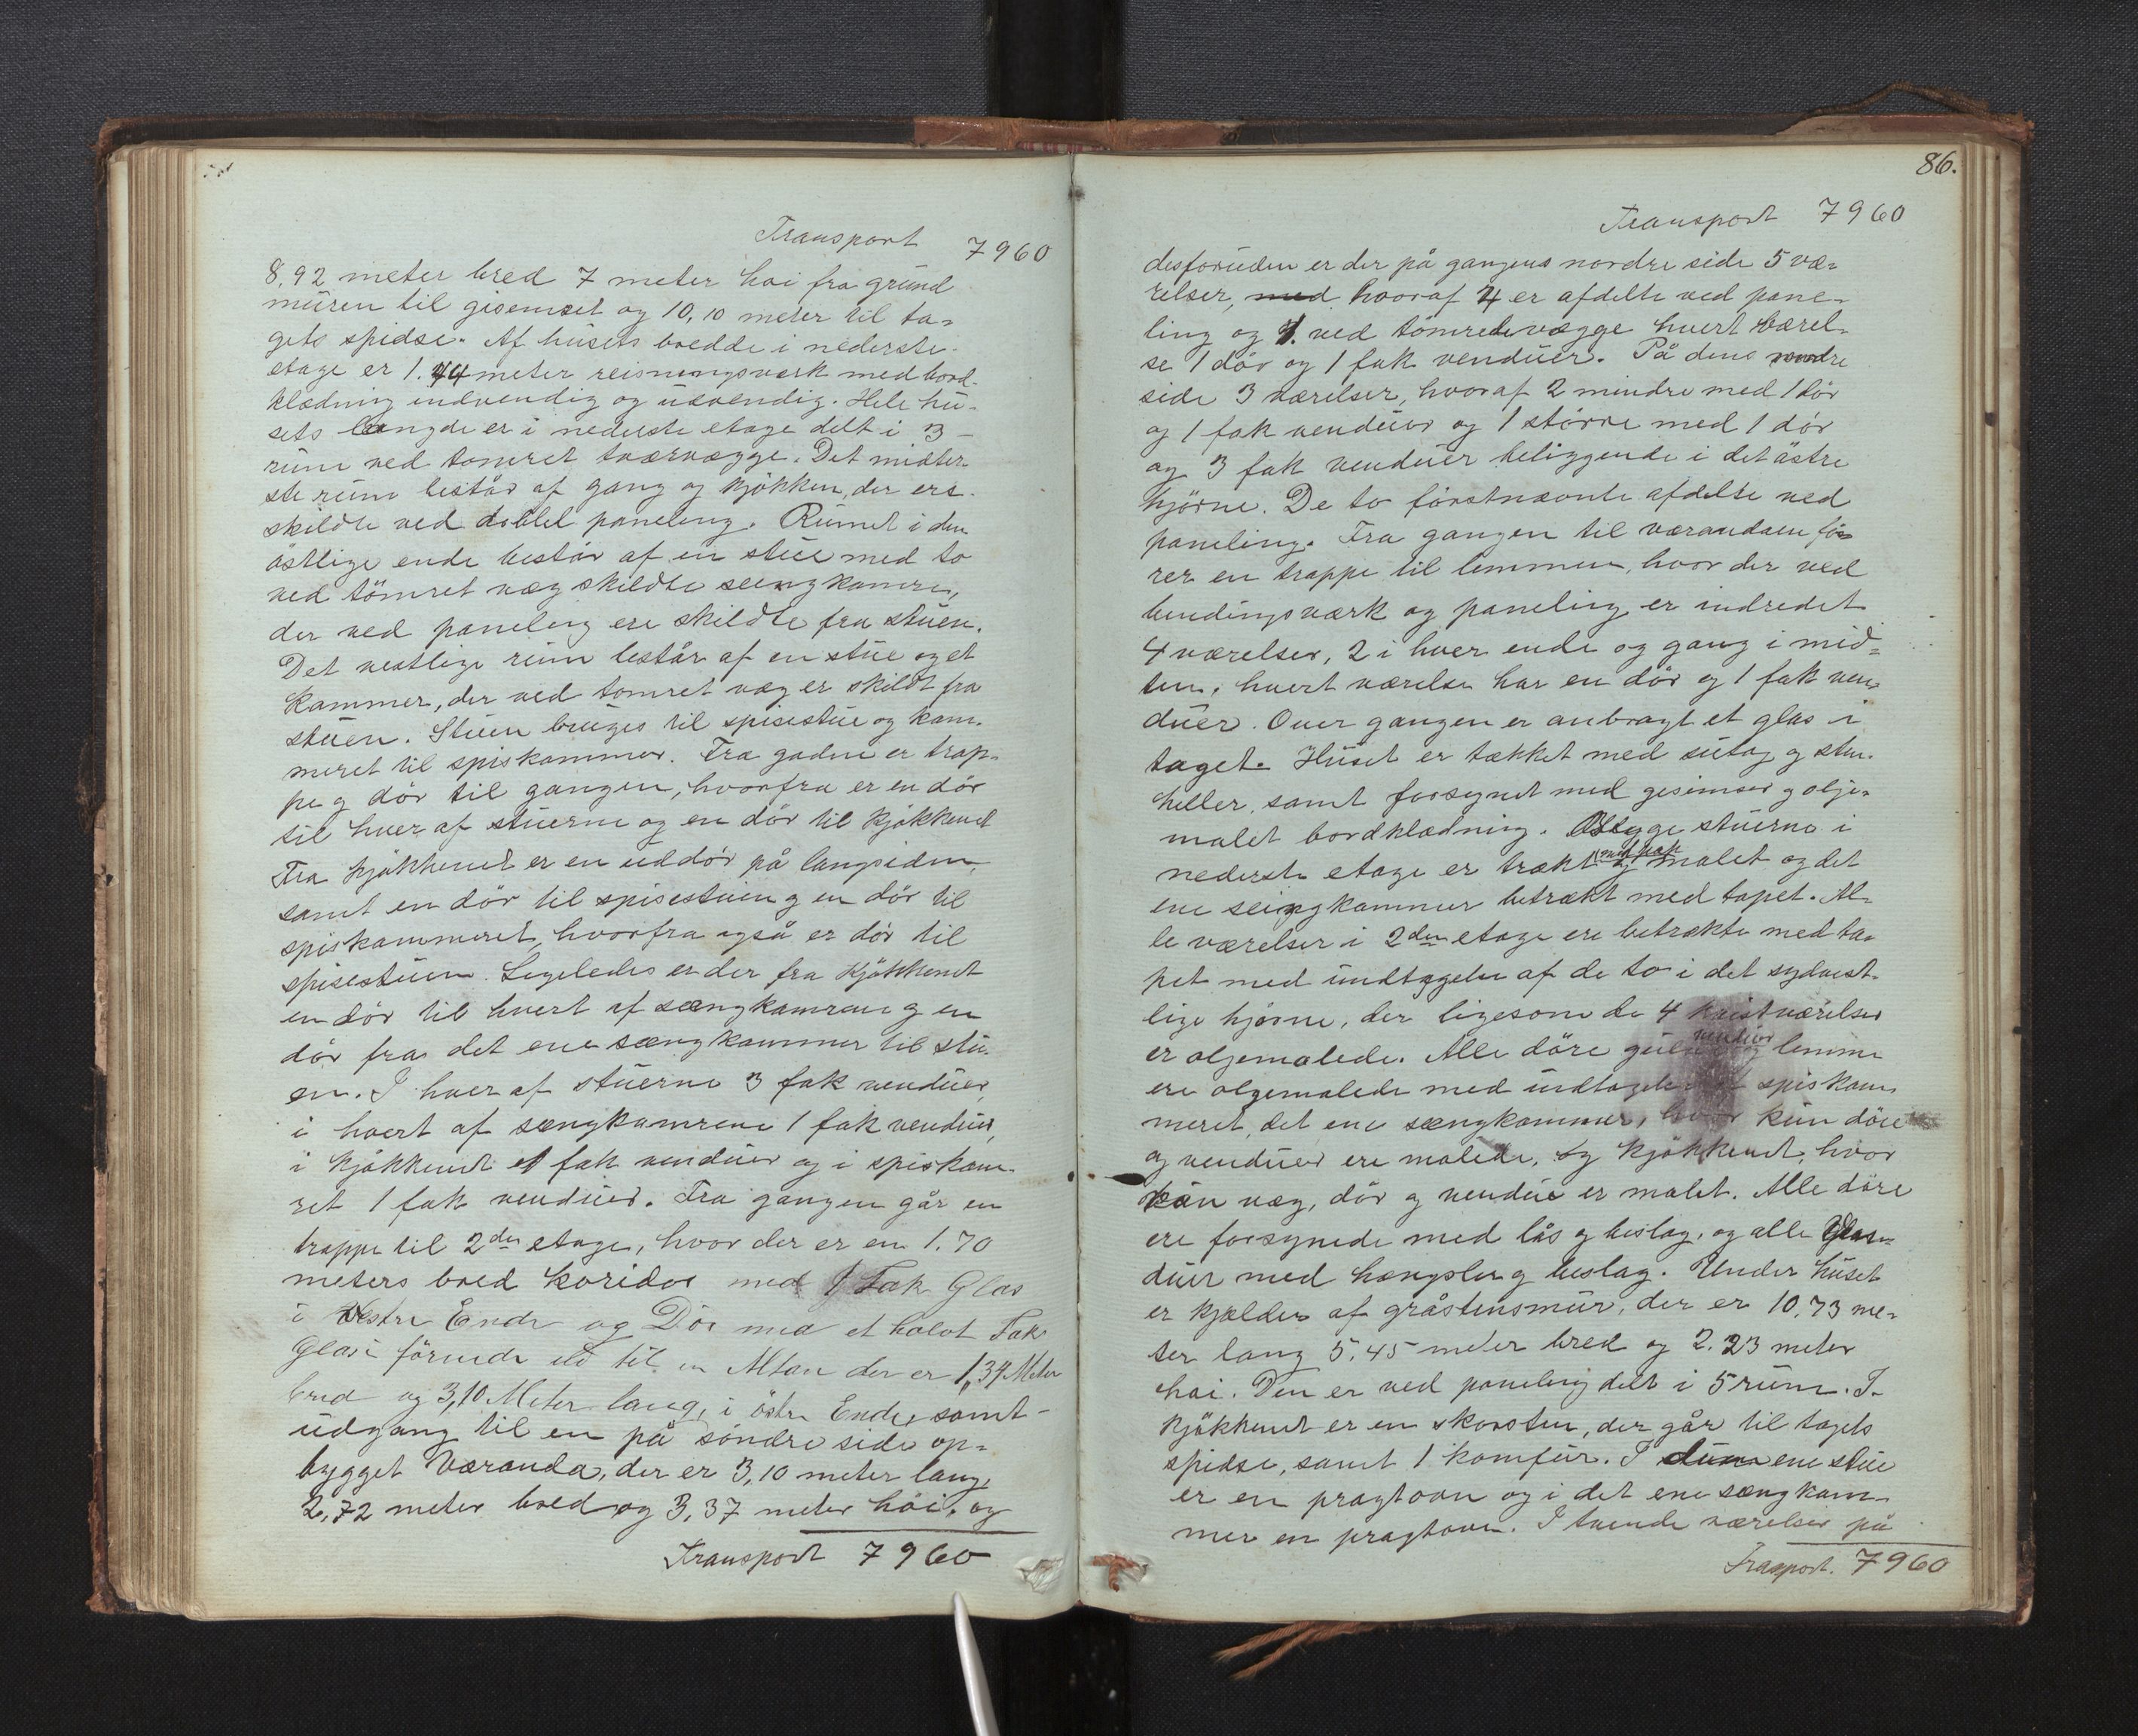 Transport 7960
8,92 meter bred 7 meter hoi fra grund
muren til gesemset og 10,10 meter til ta=
gets spidse. Af husets bredde i nederste
etage er 1.44 meter reisningsverk med bord-
klædning indvendig og udvendig. Hele hu-
sets længde er i nederste etage delt i 3
rum ved tømret tværvægge. Det midter-
ste rum består af gang og kjøkken, der ere
skildte ved dobbel paneling. Rumet i den
östlige ende består af en stue med to
ved tömret væg skildte sengkamre,
der ved paneling ere skildte fra stuen.
Det vestlige rum består af en stue og et
kammer, der ved tømret væg er skildt fra
stuen. Stuen bruges til spisestue og kam-
meret til spiskammer. Fra gaden er trap-
pe og dör til gangen, hvorfra er en dör
til hver af stuerne og en dör til kjökkenet
Fra kjökkenet er en uddör på langsiden,
samt en dör til spisestuen og en dör til
spiskammeret, hvorfra også er dör til
spisestuen. Ligeledes er der fra kjökkenet
en dör til hvert af sængkamrene og en
dör fra det ene sængkammer til stu-
en. I hver af stuerne 3 fak venduer,
i hvert af sængkamrene 1 fak venduer,
i kjökkenet et fak venduer og i spiskam-
ret 1 fak venduer. Fra gangen går en
trappe til 2den etage, hvor der er en 1.70
meters bred koridor med 1 Fak Glas
i vestre Ende og Dör med et halvt Fak
Glas förende ud til en Altan der er 1,34 Meter
bred og 3,10 Meter lang, i östre Ende, samt
udgang til en på söndre side op=
bygget Væranda, der er 3,10 meter lang,
2,72 meter bred og 3,37 meter höi, og
Transport 7960
86.
Transport 7960
desforuden er der på gangens nordre side 5 væ=
relser, med hvoraf 4 er afdelte ved pane-
ling og 1. ved tömrede vægge hvert værel-
se 1 dör og 1 fak venduer. På dens söndre
side 3 værelser, hvoraf 2 mindre med 1 dör
og 1 fak venduer og 1 större med 1 dör
og 3 fak venduer beliggende i det östre
hjörne. De to förstnævnte afdelte ved
paneling. Fra gangen til værandaen fö=
rer en trappe til lemmen, hvor der ved
bindingsværk og paneling er indredet
4 værelser, 2 i hver ende og gang i mid=
ten, hvert værelse har en dör og 1 fak ven-
duer. Over gangen er anbragt et glas i
taget. Huset er tækket med sutag og sten-
heller, samt forsynet med gesimser og olje-
malet bordklædning. Begge stuerne i
nederste etage er trækt med pap og malet og det
ene sengkammer betrækt med tapet. Al-
le værelser i 2den etage ere betrækte med ta-
pet med undtagelse af de to i det sydvest-
lige hjörne, der ligesom de 4 kvistværelser
er oljemalede. Alle döre gulve venduer og lemme
ere oljemalede med undtagelse af spiskam-
meret, det ene sængkammer, hvor kun döre
og venduer ere malede, og kjökkenet, hvor
kun væg, dör og vendue er malet. Alle döre
ere forsynede med lås og beslag, og alle
duer med hængsler og beslag. Under huset
er kjælder af gråstensmur, der er 10,73 me-
ter lang 5.45 meter bred og 2.23 meter
høi. Den er ved paneling delt i 5 rum. I
kjökkenet er en skorsten, der går til tagets
spidse, samt 1 komfur. I den ene stue
er en pragtovn og i det ene sængkam-
mer en pragtovn. I tvende værelser på
Transport. 7960